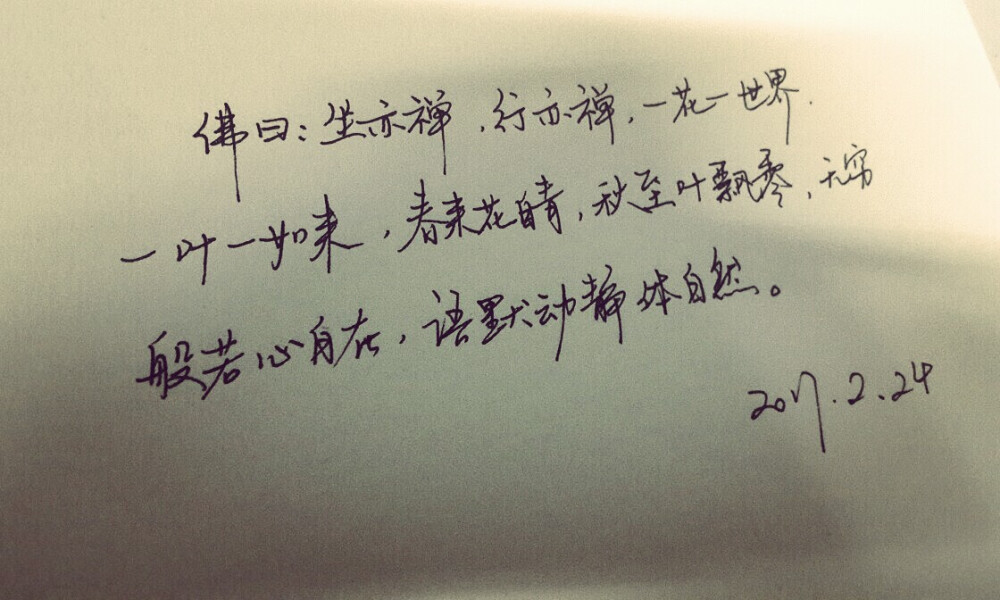 佛曰：坐亦禅，行亦禅，一花一世界.
一叶一如来，春来花自青，秋至叶飘零，无穷
般若心自在，语默动静体自然。
2017.2.24